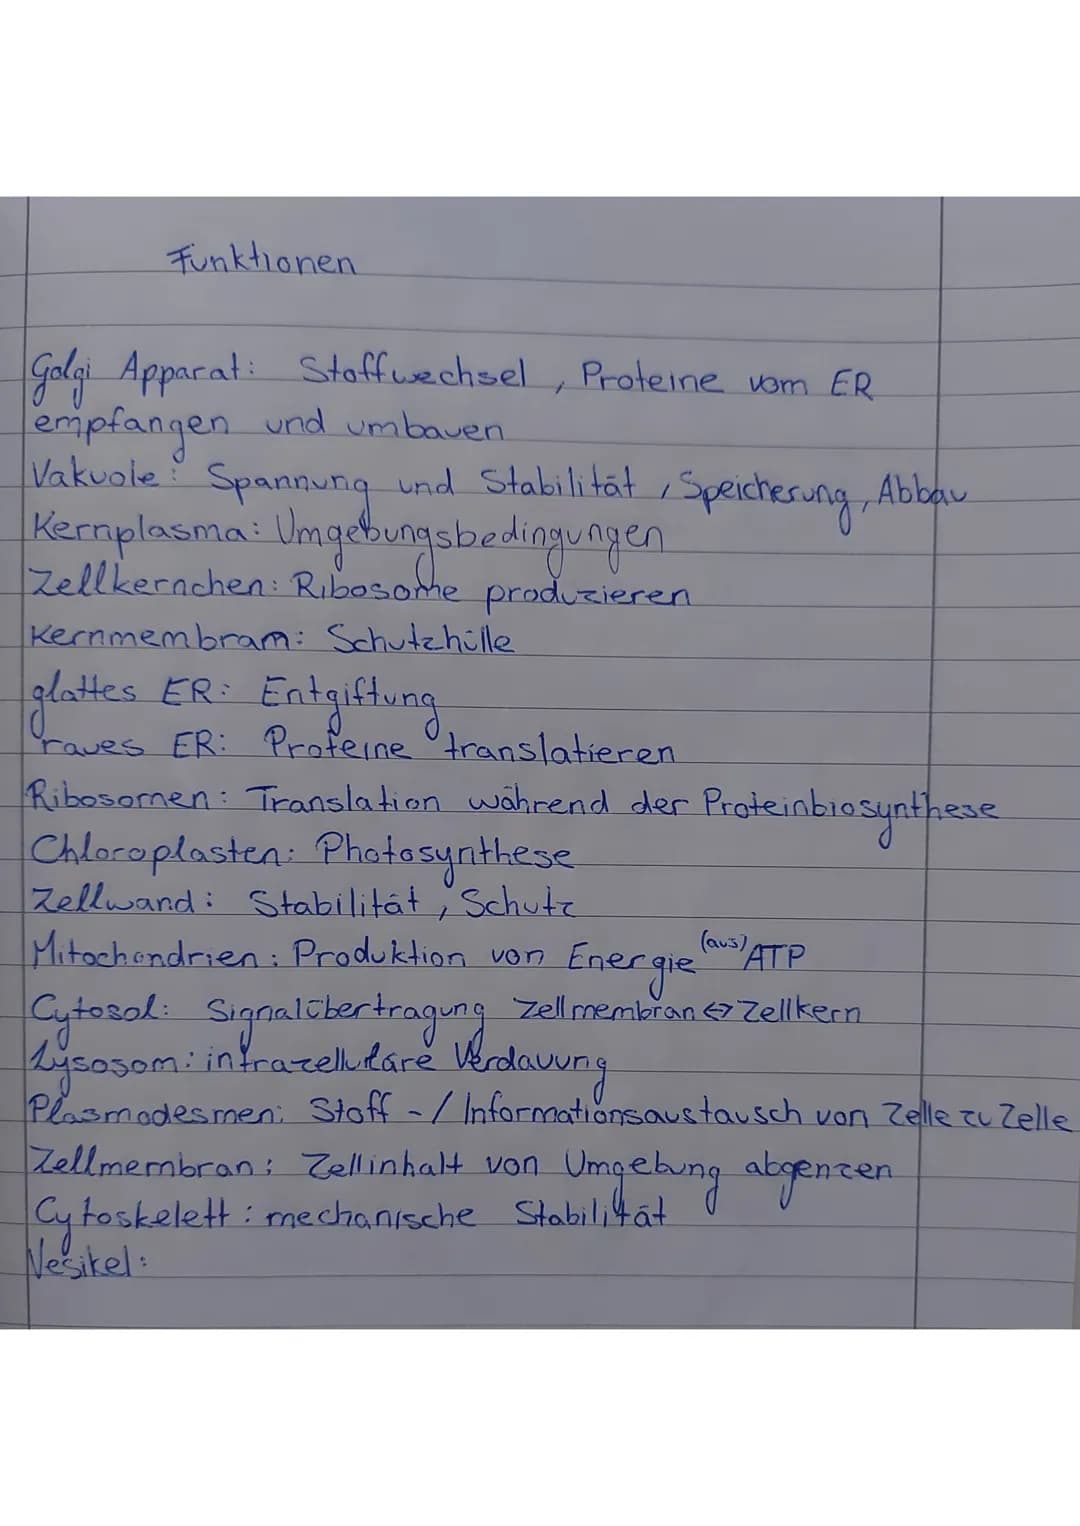 Funktionen
Golgi Apparat: Stoffwechsel, Proteine vom ER
empfangen und umbauen
Vakuole: Spannung und Stabilität, Speicherung, Abbau
Kernplasma: Umgebungsbedingungen
Zellkernchen: Ribosome produzieren
Kernmembram: Schutzhülle
glattes ER: Entgiftung
raues ER: Proteine translatieren
Ribosomen: Translation während der Proteinbiosynthese
Chloroplasten: Photosynthese
Zellwand: Stabilität, Schutz
Mitochondrien: Produktion von Energie (aus) ATP
Cytosol: Signalübertragung Zellmembran ↔ Zellkern
Lysosom: intrazelluläre Verdauung
Plasmodesmen: Stoff-/Informationsaustausch von Zelle zu Zelle
Zellmembran: Zellinhalt von Umgebung abgenzen
Cytoskelett: mechanische Stabilität
Vesikel: